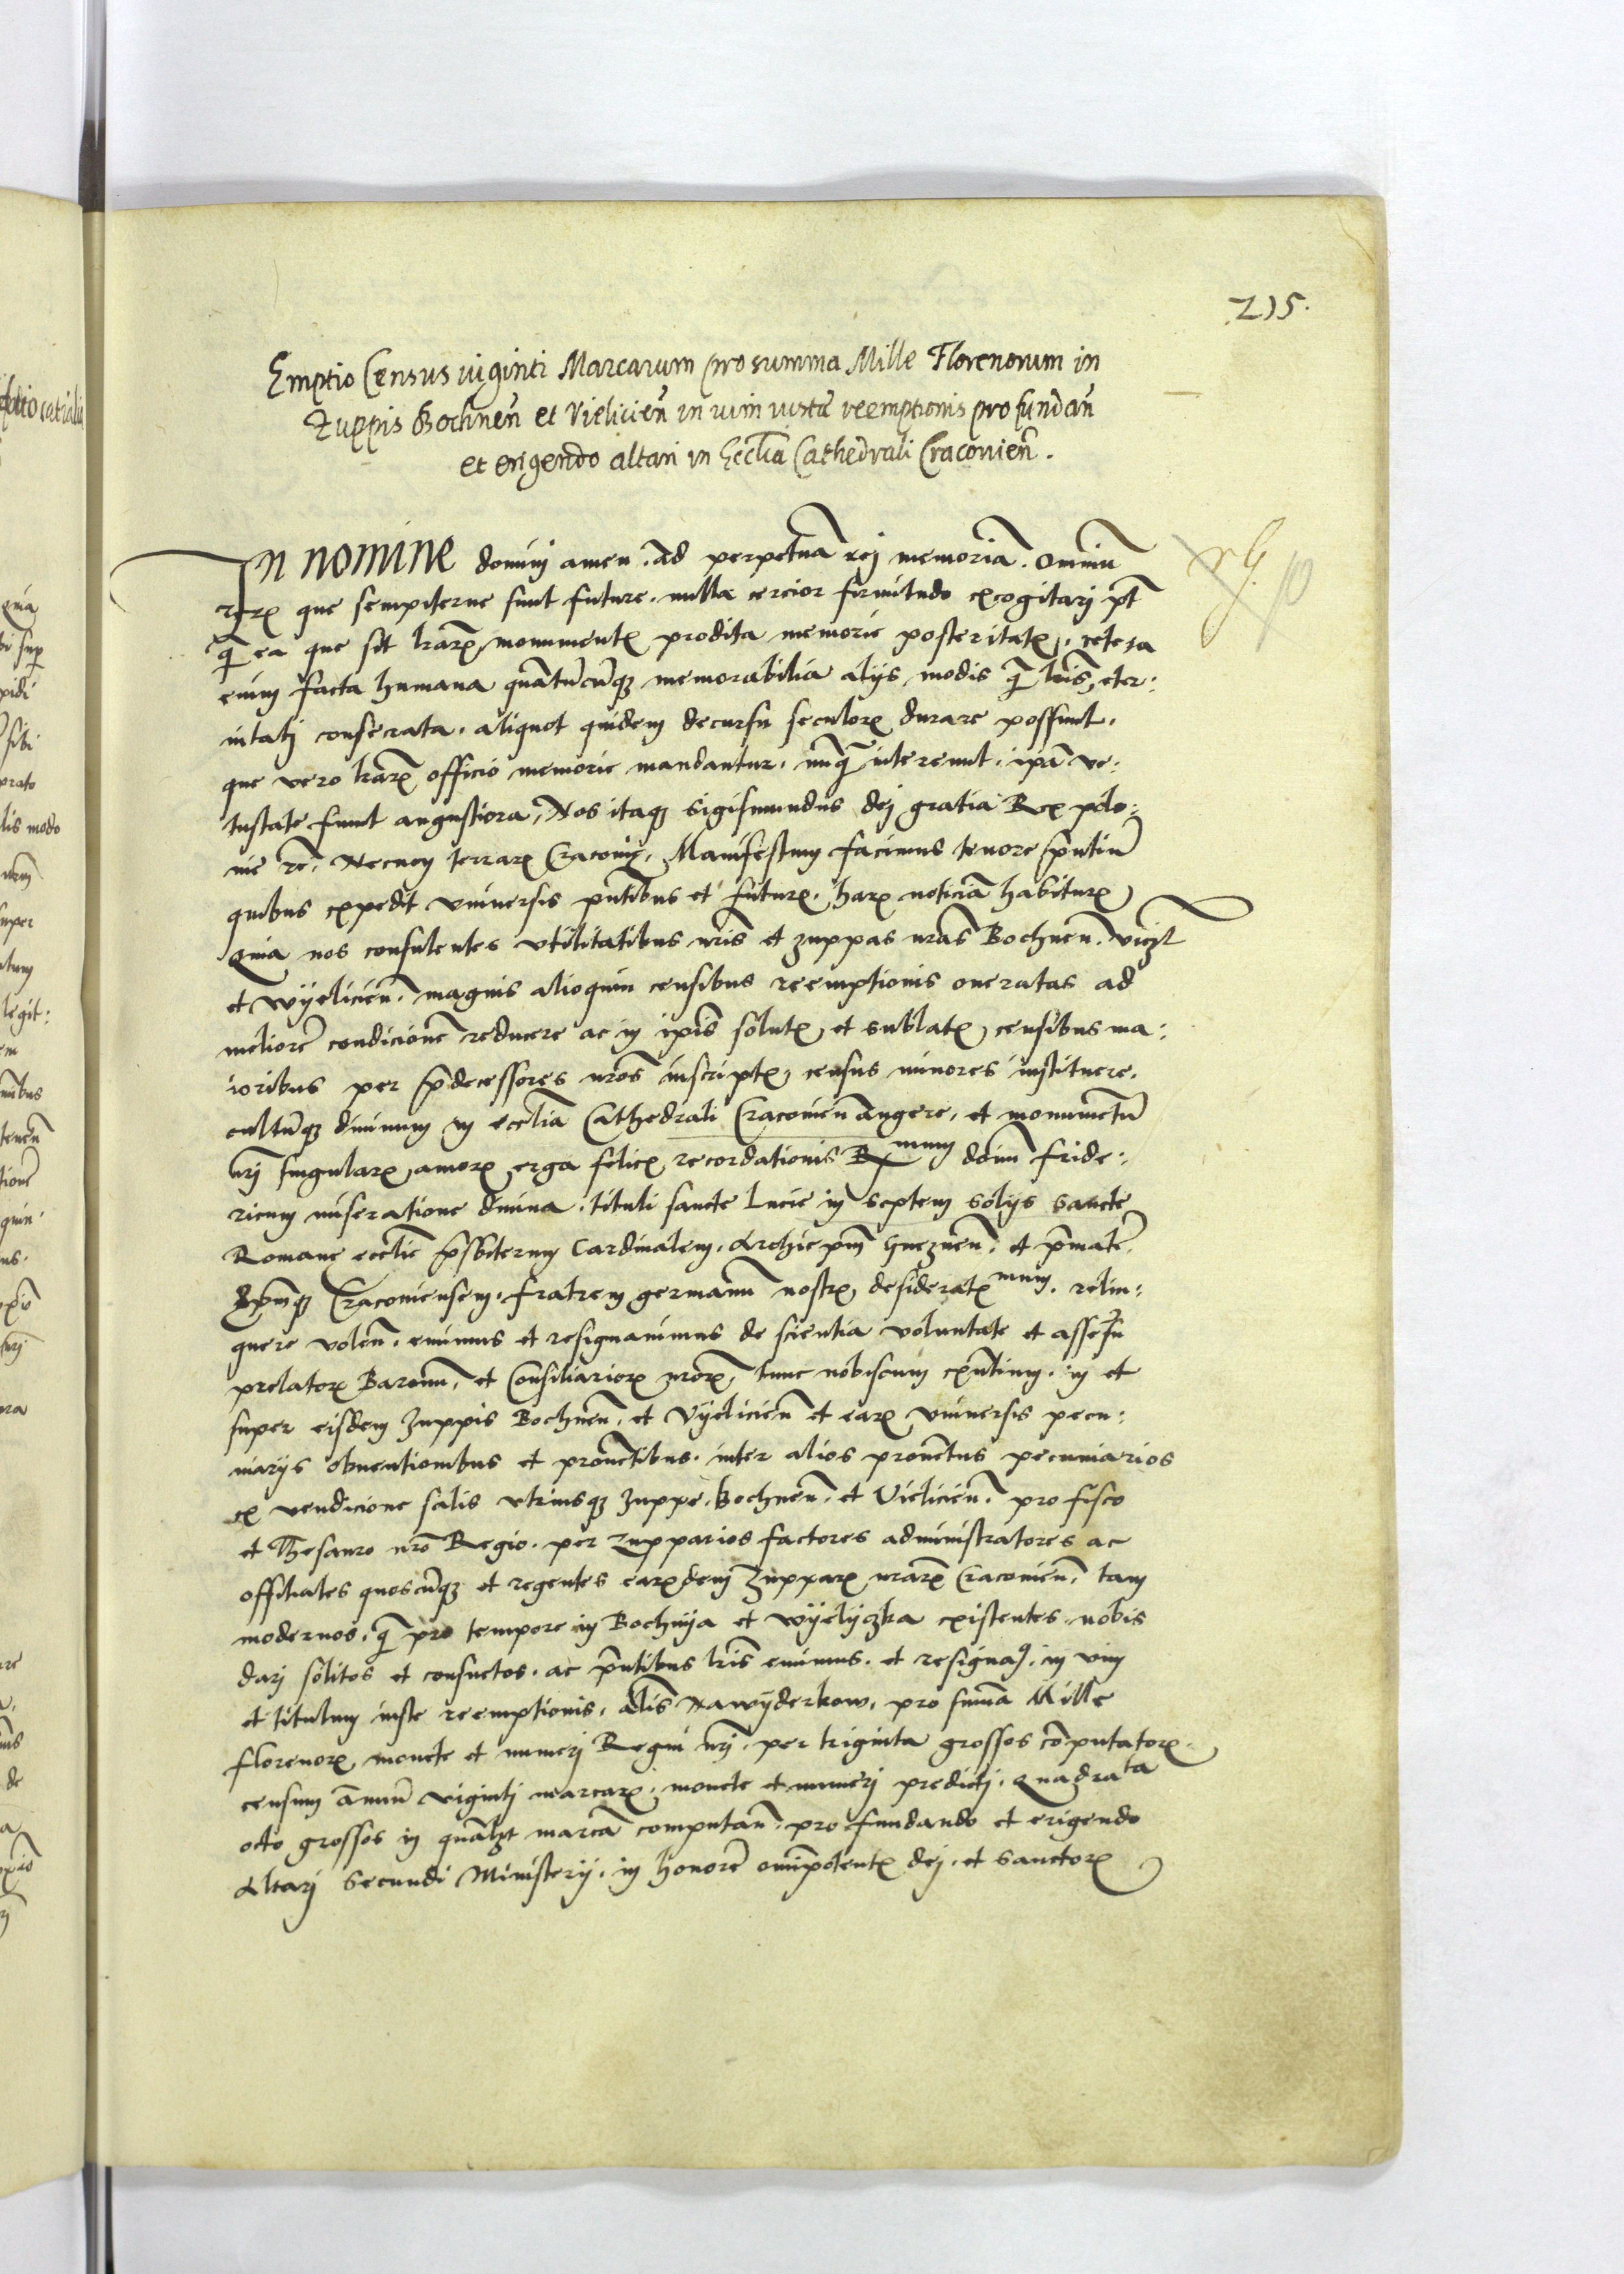 215.
Emptio Census viginti Marcarum pro summa Mille Florenorum in
Zuppis Bochnen̄ et Vielicien̄ in vim iuste reemptionis pro fundan̄
et erigendo altari in Eccl̄ia Cathedrali Cracovien̄.
In nomine domini amen. Ad perpetuā rej memoriā. Omniū
rerꝝ que sempiterne sunt future. nulla cercior firmitudo excogitarj pt̄
q̄ ea que sit l̄rarꝝ monumentꝭ prodita memorie posteritatꝭ. cetera
enim facta humana quātūcūqꝫ memorabilia alijs modis q̄ l̄ris eter:
nitatj consecrata. aliquot quidem decursu seculorꝝ durare possunt.
que vero l̄rarꝝ officio memorie mandantur. nūq̄ intereunt. ip̄a ve:
tustate sunt angustiora. Nos itaqꝫ Sigismundus dej gratia Rex polo:
nie &c. Necnon terrarꝝ Cracovie. Manifestum facimus tenore p̄ntiū
quibus expedit vniversis pn̄tibus et futurꝭ. harꝝ noticiā habiturꝭ
Quia nos consulentes vtilitatibus nr̄is et zuppas nr̄as Bochnen̄. vicꝫt
et Wyelicien̄. magnis alioquin censibus reemptionis oneratas ad
meliorē condicionē reducere ac in ip̄is solutꝭ et sublatꝭ censibus ma:
ioribus per p̄decessores nr̄os inscriptꝭ census minores instituere.
cultūqꝫ diuinum in eccl̄ia Cathedrali Cracovien̄ augere. et monumentū
nr̄j singularꝭ amorꝭ erga felicꝭ recordationis Rꝭmum dōm̄ Fride:
ricum miseratione diuina. tituli sancte Lucie in septem solijs Sancte
Romane eccl̄ie p̄sbiterum Cardinalem. Archiep̄m Gneznen̄. et p̄matē.
Ep̄mqꝫ Cracoviensem. fratrem germanū nostrꝭ desideratꝭmum. relin:
quere volen̄. emimus et resignauimus de scientia voluntate et assensu
prelatorꝝ Baronū. et Consiliariorꝝ nr̄orꝝ tunc nobiscum exn̄tium. in et
super eisdem Zuppis Bochnen̄. et Vyelicien̄ et earꝝ vniversis pecu:
niarijs obventionibus et prouētibus. inter alios prouentus pecuniarios
ex vendicione salis vtriusqꝫ zuppe. Bochnen̄. et Vielicien̄. pro fisco
et Thesauro nr̄o Regio. per zupparios factores administratores ac
officiales quoscūqꝫ et regentes earꝝdem Zupparꝝ nr̄arꝝ Cracovien̄. tam
modernos. q̄ pro tempore in Bochnya et Wyelyczka existentes nobis
darj solitos et consuetos. ac p̄ntibus l̄ris emimus. et resignaꝰ. in vim
et titulum iuste reemptionis. al̄is Nawyderkow. pro sum̄a Mille
florenorꝝ monete et numerj Regni nr̄j. per triginta grossos cōputatorꝝ.
censum ānuū vigintj marcarꝝ. monete et numerj predictj. Quadrata
octo grossos in quālꝫt marcā computan̄. pro fundando et erigendo
Altarj Secundi Ministerij. in honorē om̄ipotentꝭ dej. et Sanctorꝝ